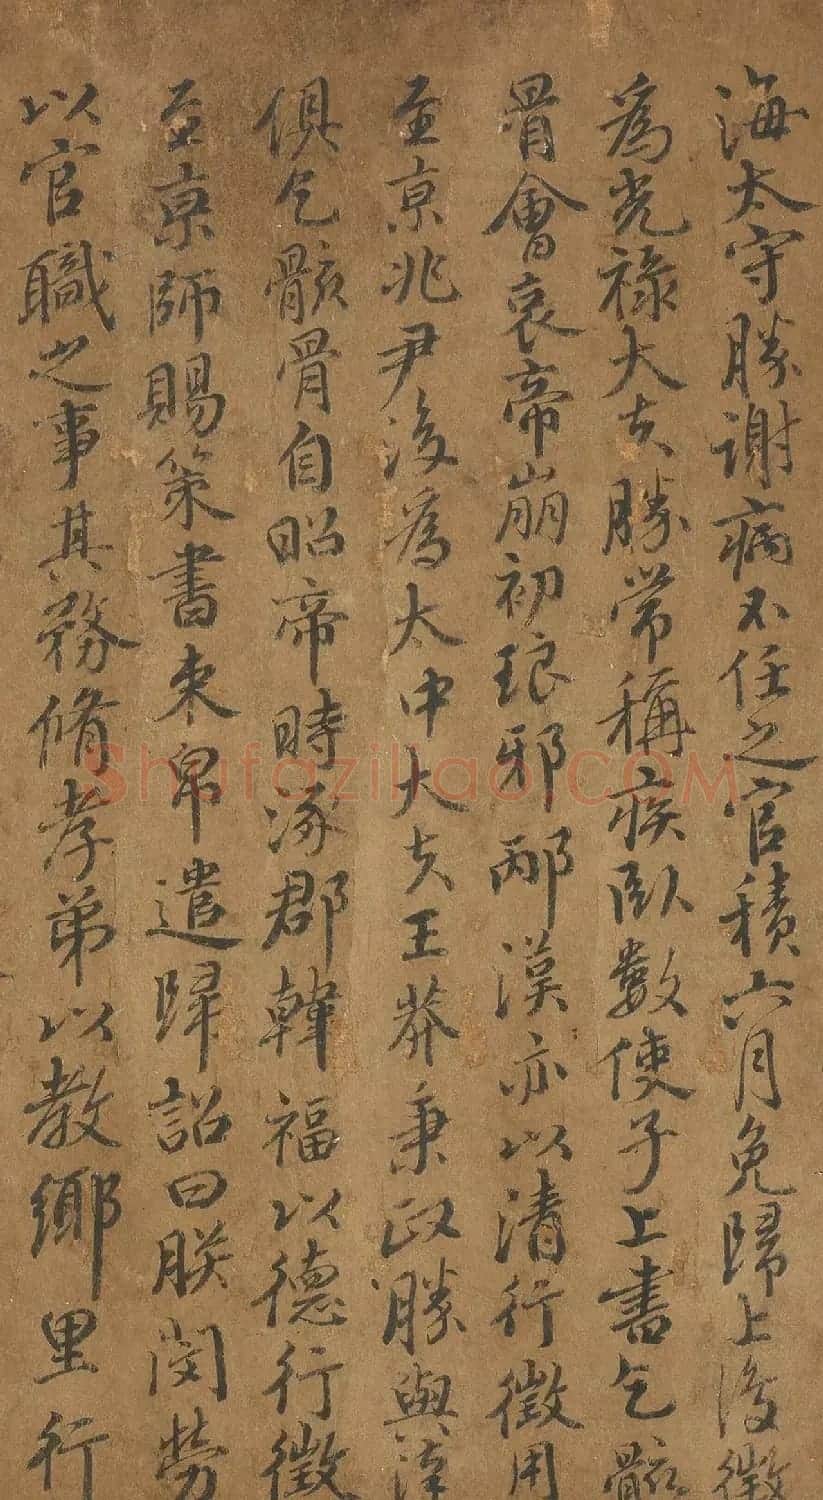 海太守勝謝病不任之官積六月免歸上復徵
為光祿大夫勝常稱疾臥數使子上書乞骸
骨會哀帝崩初琅邪邴漢亦以清行徵用
至京兆尹後為太中大夫王莽秉政勝與漢
俱乞骸骨自昭帝時涿郡韓福以德行徵
至京師賜策書束帛遣歸詔曰朕閔勞
以官職之事其務脩孝弟以教鄉里行
Shufaziliao.COM